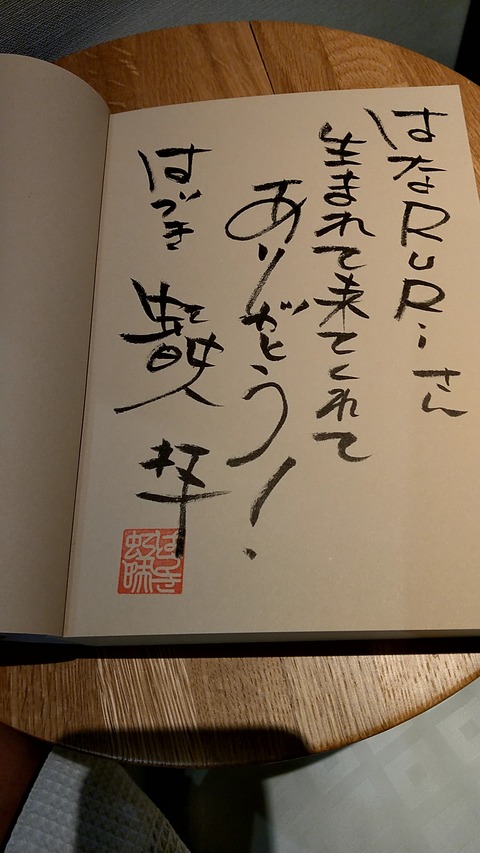 はなRURiさん
生まれて来てくれて
ありがとう!
はづき 虹映 拝
はづき
虹映